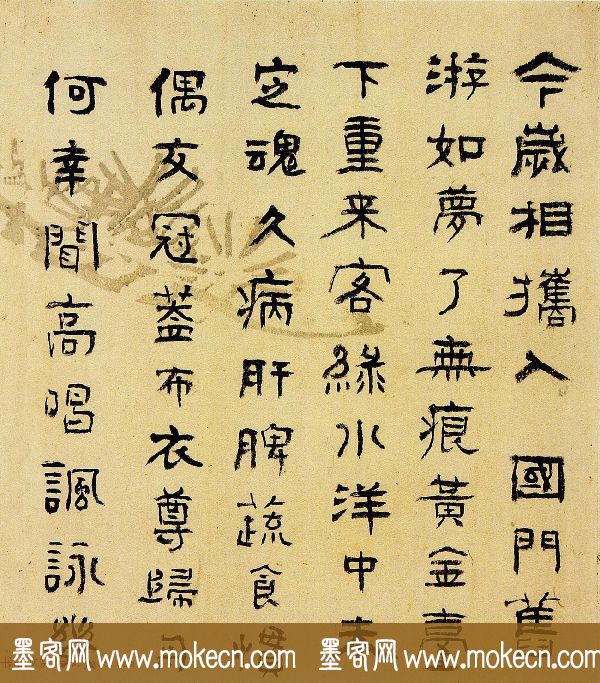 今歲相攜入 國門舊
游如夢了無痕黃金臺
下重来客綠水洋中
定魂久病肝脾蔬食慣
偶交冠蓋布衣尊歸
何幸聞高唱諷詠
墨客网 www.mokecn.com 墨客网 www.mokecn.com